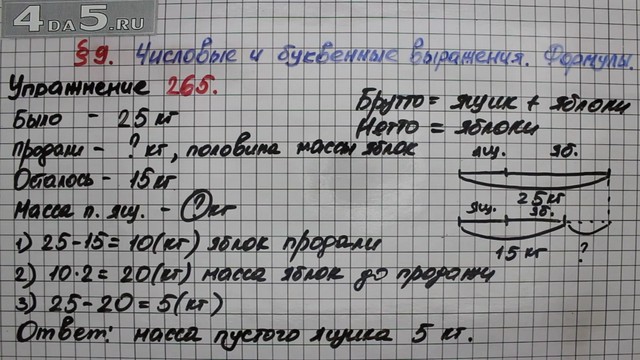 4DA5.RU
§9. Числовые и буквенные выражения. Формулы.
Упражнение 265.
Было - 25 кг
Продали - ? кг, половина массы яблок
Осталось - 15 кг
Масса п. ящ. - ? кг
1) 25-15=10(кг) яблок продали
2) 10·2=20(кг) масса яблок до продажи
3) 25-20=5(кг)
Ответ: масса пустого ящика 5 кг.
Брутто = ящик + яблоки
Нетто = яблоки
ящ. яб.
25 кг
ящ. яб.
15 кг ?